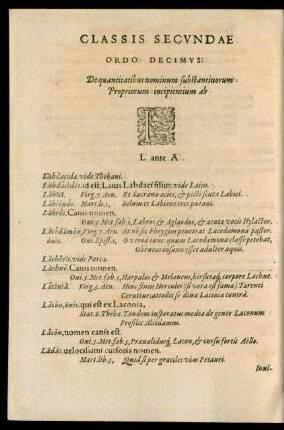 CLASSIS SECVNDAE
ORDO DECIMVS:
De quantitatibus nominum substantiuorum
Propriorum incipientium ab
L
L ante A
Labdacidæ. vide Thebani.
Labdacides. id est, Laius Labdaci filius. vide Laius.
Labici. Virg. 7. Aen. Et Sacranæ acies, & picti scuta Labici.
Mart. li. 1,
Labros. Canis nomen.
Oui. 3. Met. fab. 3, Labros & Aglaodos, & acutæ vocis Hylactor.
Lacedæmon, Virg. 7. Aen. At non sic Phrygius penetrat Lacedæmona pastor.
onis. Oui. Epist. 1, O vtinam tunc quum Lacedæmona classe petebat,
Obrutus insanis esset adulter aquis.
Lachesis. vide Parca.
Lachne. Canis nomen.
Oui. 3. Met. fab. 3, Harpalos & Melaneus, hirsutaq́; corpore Lachne.
Lacinia. Virg. 3. Aen. Hinc sinus Herculei (si vera est fama) Tarenti
Cernitur: attollit se diua Lacinia contra.
Lacon, onis. qui est ex Laconia.
Laconum
Præsilit Alcidamus.
Lacon, nomen canis est.
Oui. 3. Met. fab. 3, Præualidusq́; Lacon, & cursu fortis Aëllo.
Ladas. velocissimi cursoris nomen.
Mart. lib. 2, Quid si per graciles vias Petauri
Inui-